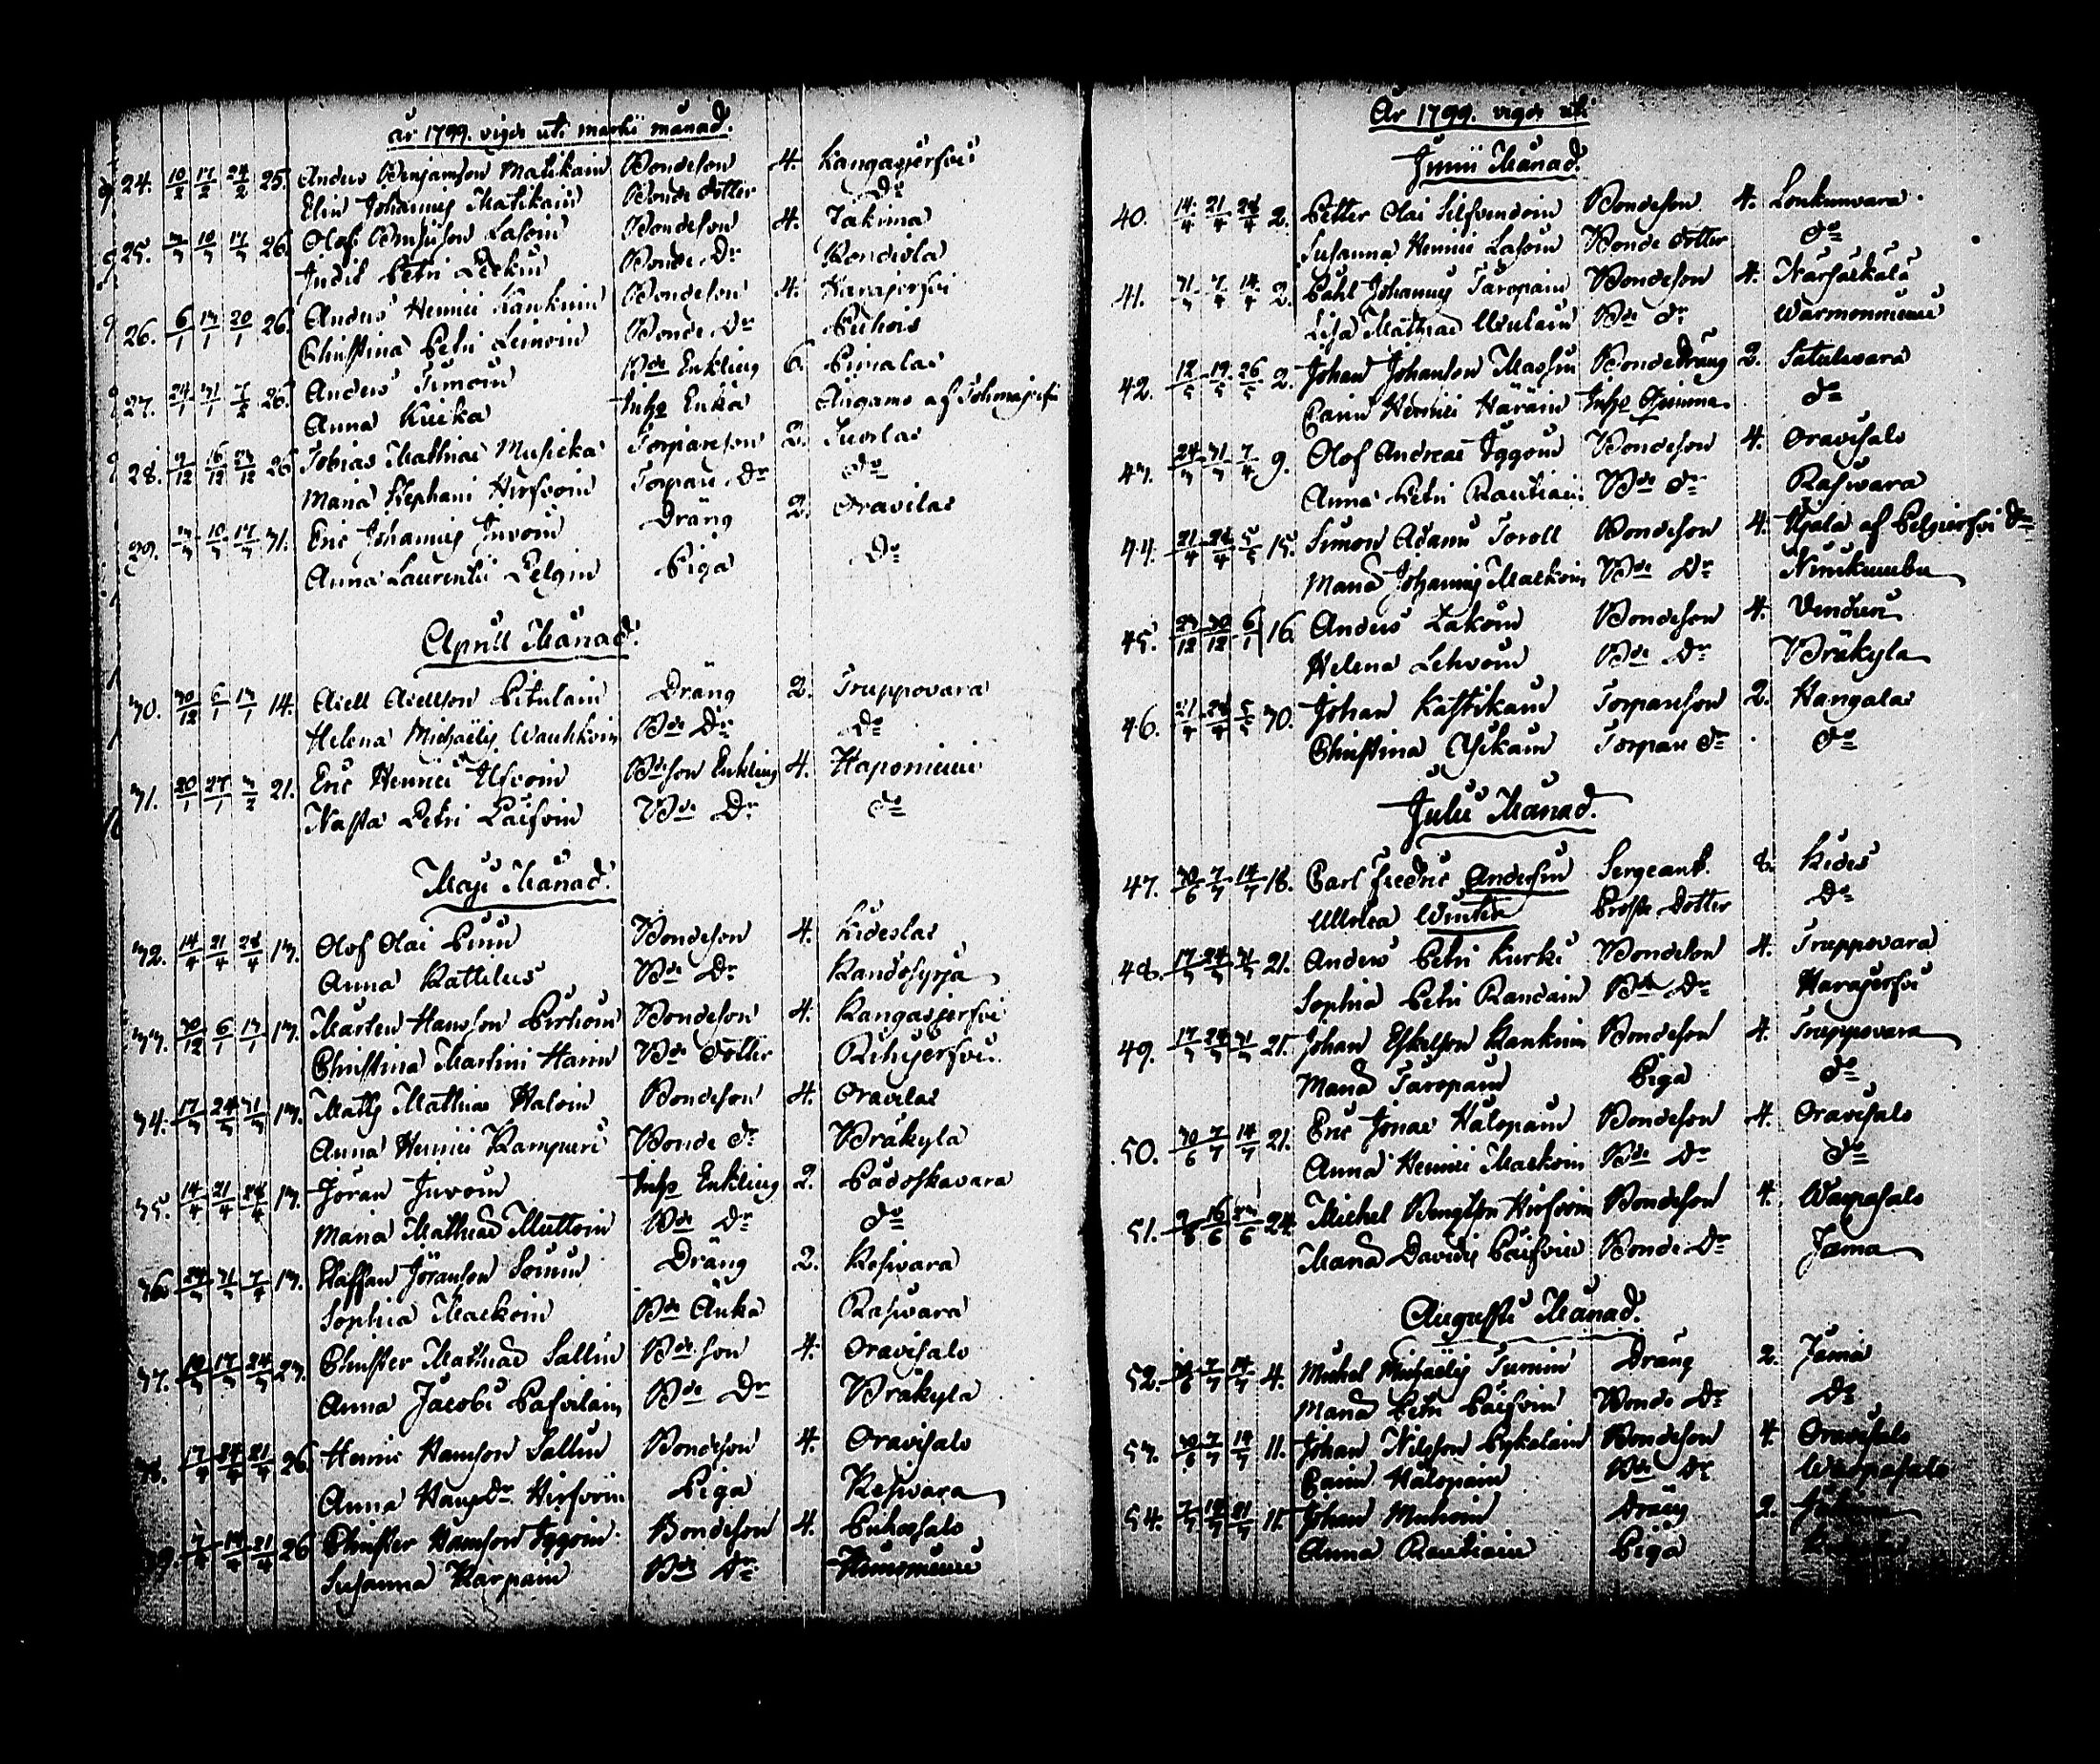 år 1799. vigde uti martii månad.
24. 10/2 17/2 24/2 25. Anders Benjamson Matikain Bondeson 4. Kangasjerfvi
Elin Johannis Matikain Bonde dotter Do
25. 3/3 10/3 17/3 26. Olof Lasoin Bondeson 4. Jakima
Judit Petri Bonde Dr
26. 6/1 13/1 20/1 26. Anders Henrici Kankuin Bondeson 4. Harajerfvi
Christina Petri Leinoin Bonde Dr Puhois
27. 24/1 31/1 7/2 26. Anders Simoin Bde Enkling 6.
Anna Kucka Inhs Enka af Tohmajerfvi
28. 9/12 16/12 23/12 26 Tobias Mathiae Musicka Torpareson 2. Juorlax
Maria Stephani Hirfvoin Torpare Dr Do
29. 3/3 10/3 17/3 31. Eric Johannis Juvoin Dräng 2. Oravilax
Anna Laurentii Pelgin Piga Do
Aprill Månad.
30. 30/12 6/1 13/1 14. Axell Axellson Pitulain Dräng 2. Truppovara
Helena Michaëlis Wauhkoin Bde Dr Do
31. 20/1 27/1 3/2 21. Eric Henrici Ilfvoin Bdeson Enkling 4. Haponiemi
Nasta Petri Päifvin Bde Dr do
Maji Månad.
32. 14/4 21/4 28/4 13. Olof Olai Bondeson 4. Kideslax
Anna Kattelus Bde Dr Kandosyrja
33. 30/12 6/1 13/1 13. Mårten Hansson Pirhoin Bondeson 4. Kangasjerfvi
Christina Martini Harin Bde dotter Rihijerfvi
34. 17/3 24/3 31/3 13. Matts Mathiae Haloin Bondeson 4. Oravilax
Anna Henrici Kampuri Bonde dr Bräkylä
35. 14/4 21/4 28/4 13. Jöran Juvoin Inhs Enkling 2. Padoskavara
Maria Mathiae Muttoin Bde Dr do
36. 24/3 31/3 7/4 13. Staffan Jöranson Dräng 2. Kesivara
Sophia Matkoin Bde Änka Rasivara
37. 10/3 17/3 24/3 23. Christer Mathiae Sallin Bde son 4. Oravisalo
Anna Jacobi Pasfvilain Bde Dr Bräkylä
38. 26. Henric Hansson Sallin Bondeson 4. Oravisalo
Anna Hans Dr Hirfvoin Piga Kesivara
39. 7/4 14/4 21/4 26 Christer Hansson Iggoin Bondeson 4. Puhossalo
Susanna Karpain Bde Dr
År 1799. vigde uti
Junii Månad.
40. 14/4 21/4 28/4 2. Petter Olai Silfvendoin Bondeson 4. Loukunvara
Susanna Henrici Lasoin Bonde dotter do
41. 31/3 7/4 14/4 2. Påhl Johannis Taropain Bondeson 4. Närsäkälä
Lisa Mathiae Bde dr Warmonniemi
42. 12/5 19/5 26/5 2. Johan Johanson Bondedräng 2. Satulavara
Carin Henrici Häräin Inhs Qvinna do
43. 24/3 31/3 7/4 9. Olof Andreae Iggoin Bondeson 4. Oravisalo
Anna Petri Rautiain Bde dr Rasivara
44. 21/4 28/4 5/5 15. Simon Adami Soroll Bondeson 4. af Pelgjerfvi Do
Maria Johannis Matkoin Bde Dr Niinikumbu
45. 23/12 30/12 6/1 16. Anders Lakoin Bondeson 4.
Helena Lehvoin Bde Dr Bräkylä
46. 21/4 28/4 5/5 30. Johan Kastikain Torpareson 2. Hangalax
Christina Torpare dr do
Julii Månad.
47. 30/6 7/7 14/7 18. Carl Fredric Andersin Sergeant. 8. Kides
Ulrica Winter Prosts Dotter Do
48. 17/3 24/3 31/3 21. Anders Petri Kurki Bondeson 4. Truppovara
Sophia Petri Randain Bde Dr Harajerfvi
49. 17/3 24/3 31/3 21. Johan Eskelson Kankuin Bondeson 4. Truppovara
Maria Taropain Piga do
50. 30/6 7/7 14/7 21. Eric Jonae Halopain Bondeson 4. Oravisalo
Anna Henrici Matkoin Bde Dr do
51. 9/6 16/6 23/6 24. Michel Bengtson Hirfvoin Bondeson 4. Warpasalo
Maria Davidis Päifvin Bonde Dr Jama
Augusti Månad.
52. 30/6 7/7 14/7 4. Michel Michaëlis Dräng 2. Jama
Maria Petri Päifvin Bonde Dr Do
53. 30/6 7/7 14/7 11. Johan Nilsson Pykälain Bondeson 4. Oravisalo
Carin Halopain Bde Dr Warpasalo
54. 7/7 14/7 21/7 11. Johan Muhoin Dräng 2.
Anna Rautiain Piga